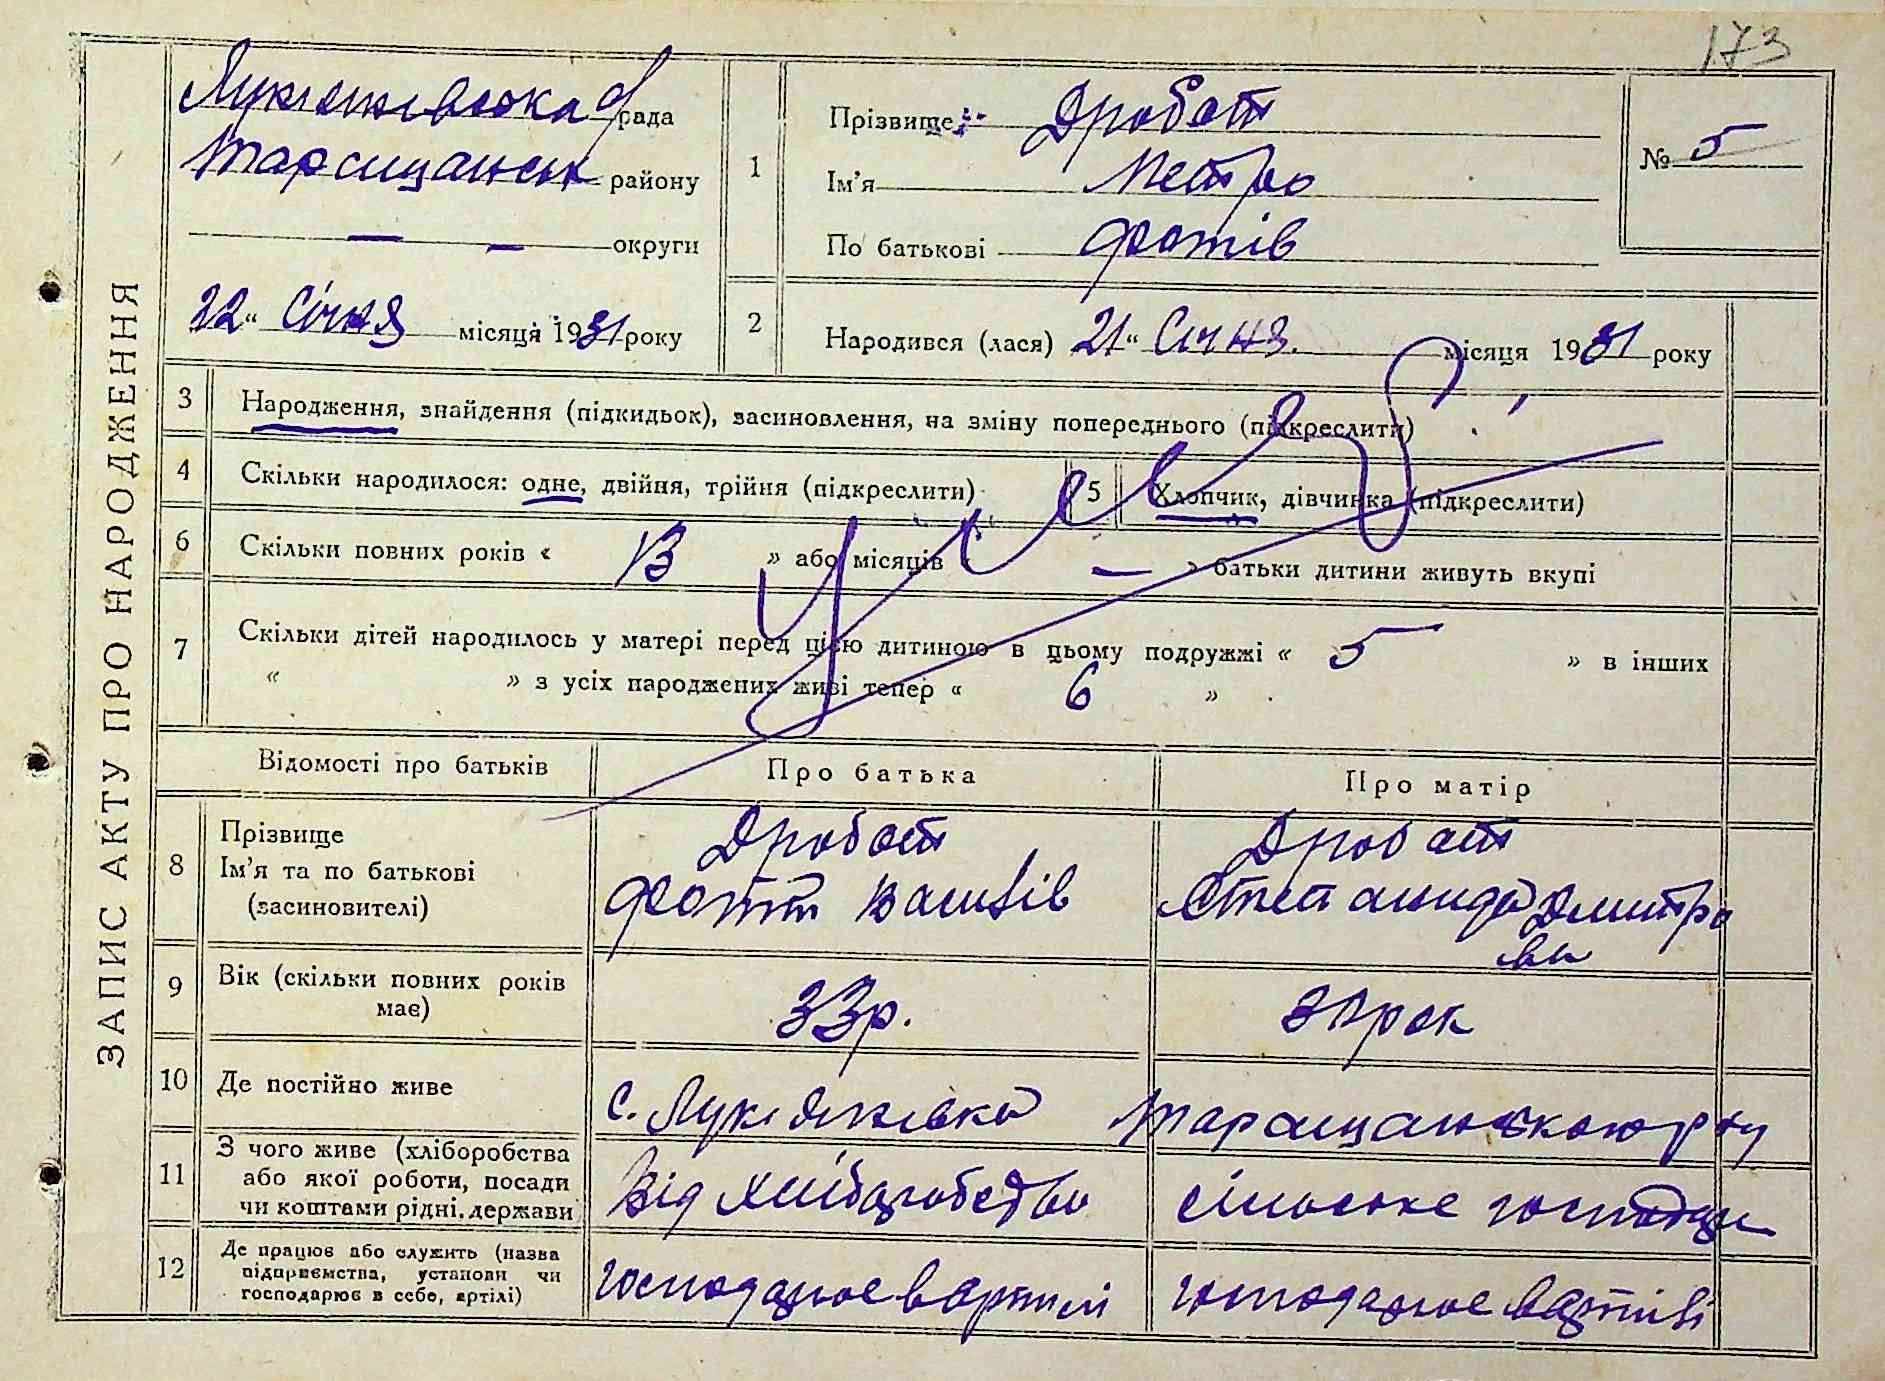 173
ЗАПИС АКТУ ПРО НАРОДЖЕННЯ
Лукянівська рада
Таращанськ району
— — округи
22 " Січня місяця 1931 року
1
Прізвище Дробот
Ім'я Петро
По батькові Фотів
№ 5
2
Народився (лася) 21 " Січня місяця 1931 року
3 Народження, знайдення (підкидьок), засиновлення, на зміну попереднього (підкреслити)
4 Скільки народилося: одне, двійня, трійня (підкреслити) 5 Хлопчик, дівчинка (підкреслити)
6 Скільки повних років « 13 » або місяців — » батьки дитини живуть вкупі
7 Скільки дітей народилось у матері перед цією дитиною в цьому подружжі « 5 » в інших
« » з усіх народжених живі тепер « 6 »
Відомості про батьків Про батька Про матір
8 Прізвище
Ім'я та по батькові
(засиновителі)
Дробот
Фотій Василів
Дробот
Степанида Дмитро
ви
9 Вік (скільки повних років
має)
33р. рок
10 Де постійно живе с. Лукянівка Таращанською р ну
11 З чого живе (хліборобства
або якої роботи, посади
чи коштами рідні, держави
Від хліборобство сільське господар
12 Де працює або служить (назва
підприємства, установи чи
господарює в себе, артілі)
господарює в артилі господарює в артілі